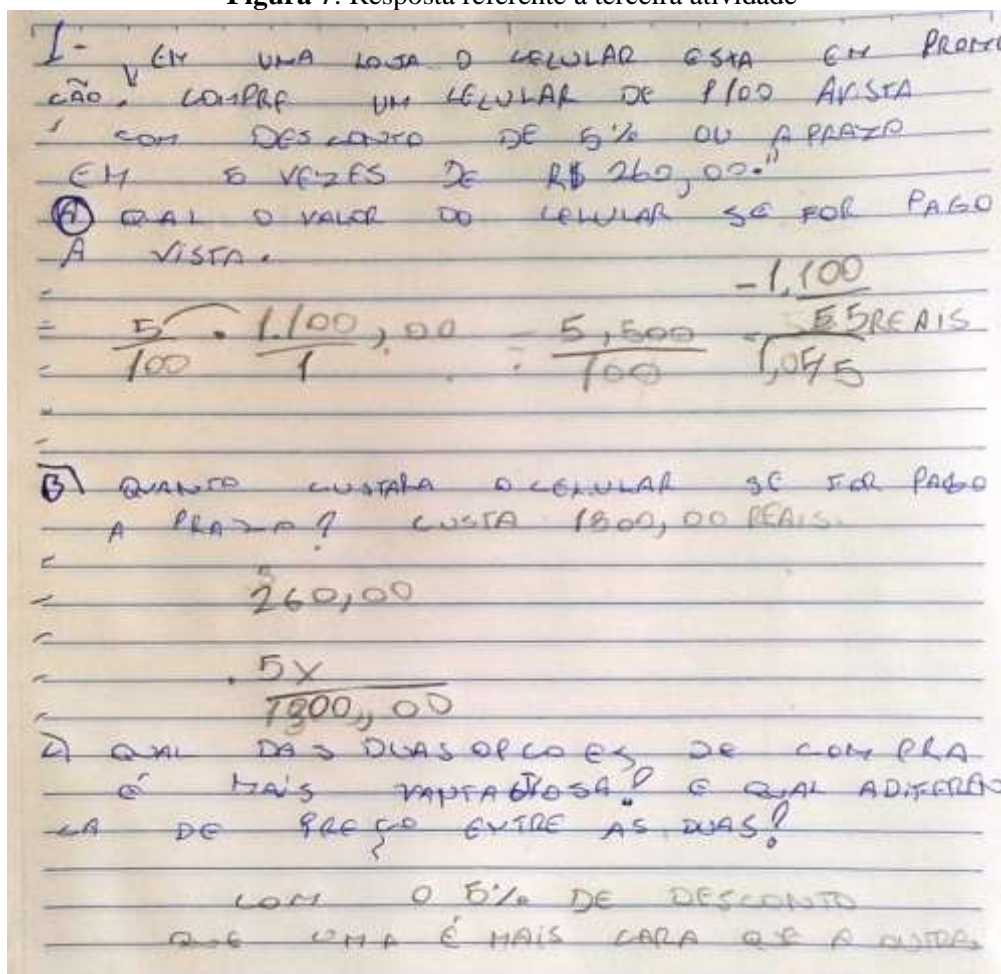 Figura 7: Resposta referente a terceira atividade
I- EM UMA LOJA O CELULAR ESTA EM PROMO
ÇÃO. COMPRE UM CELULAR DE 1100 AVISTA
COM DESCONTO DE 5% OU A PRAZO
EM 5 VEZES DE R$ 260,00."
A QAL O VALOR DO CELULAR SE FOR PAGO
A VISTA.
5/100 . 1.100,00/1 = 5,500/100
-1,100
55REAIS
1,045
B) QUANTO CUSTARA O CELULAR SE FOR PAGO
A PRAZO? CUSTA 1300,00 REAIS.
3
260,00
. 5X
1300,,00
C) QUAL DAS DUAS OPCOES DE COMPRA
É MAIS VANTAJOSA? E QUAL ADIFEREN
CA DE PREÇO ENTRE AS DUAS?
COM O 5% DE DESCONTO
QUE UMA É MAIS CARA QUE A OUTRA